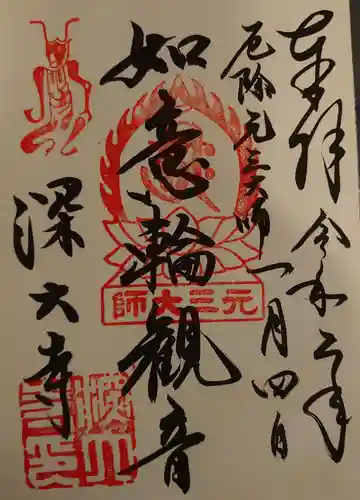 奉拝 令和二年
厄除元三大師 一月四日
如意輪観音
元三大師
深大寺